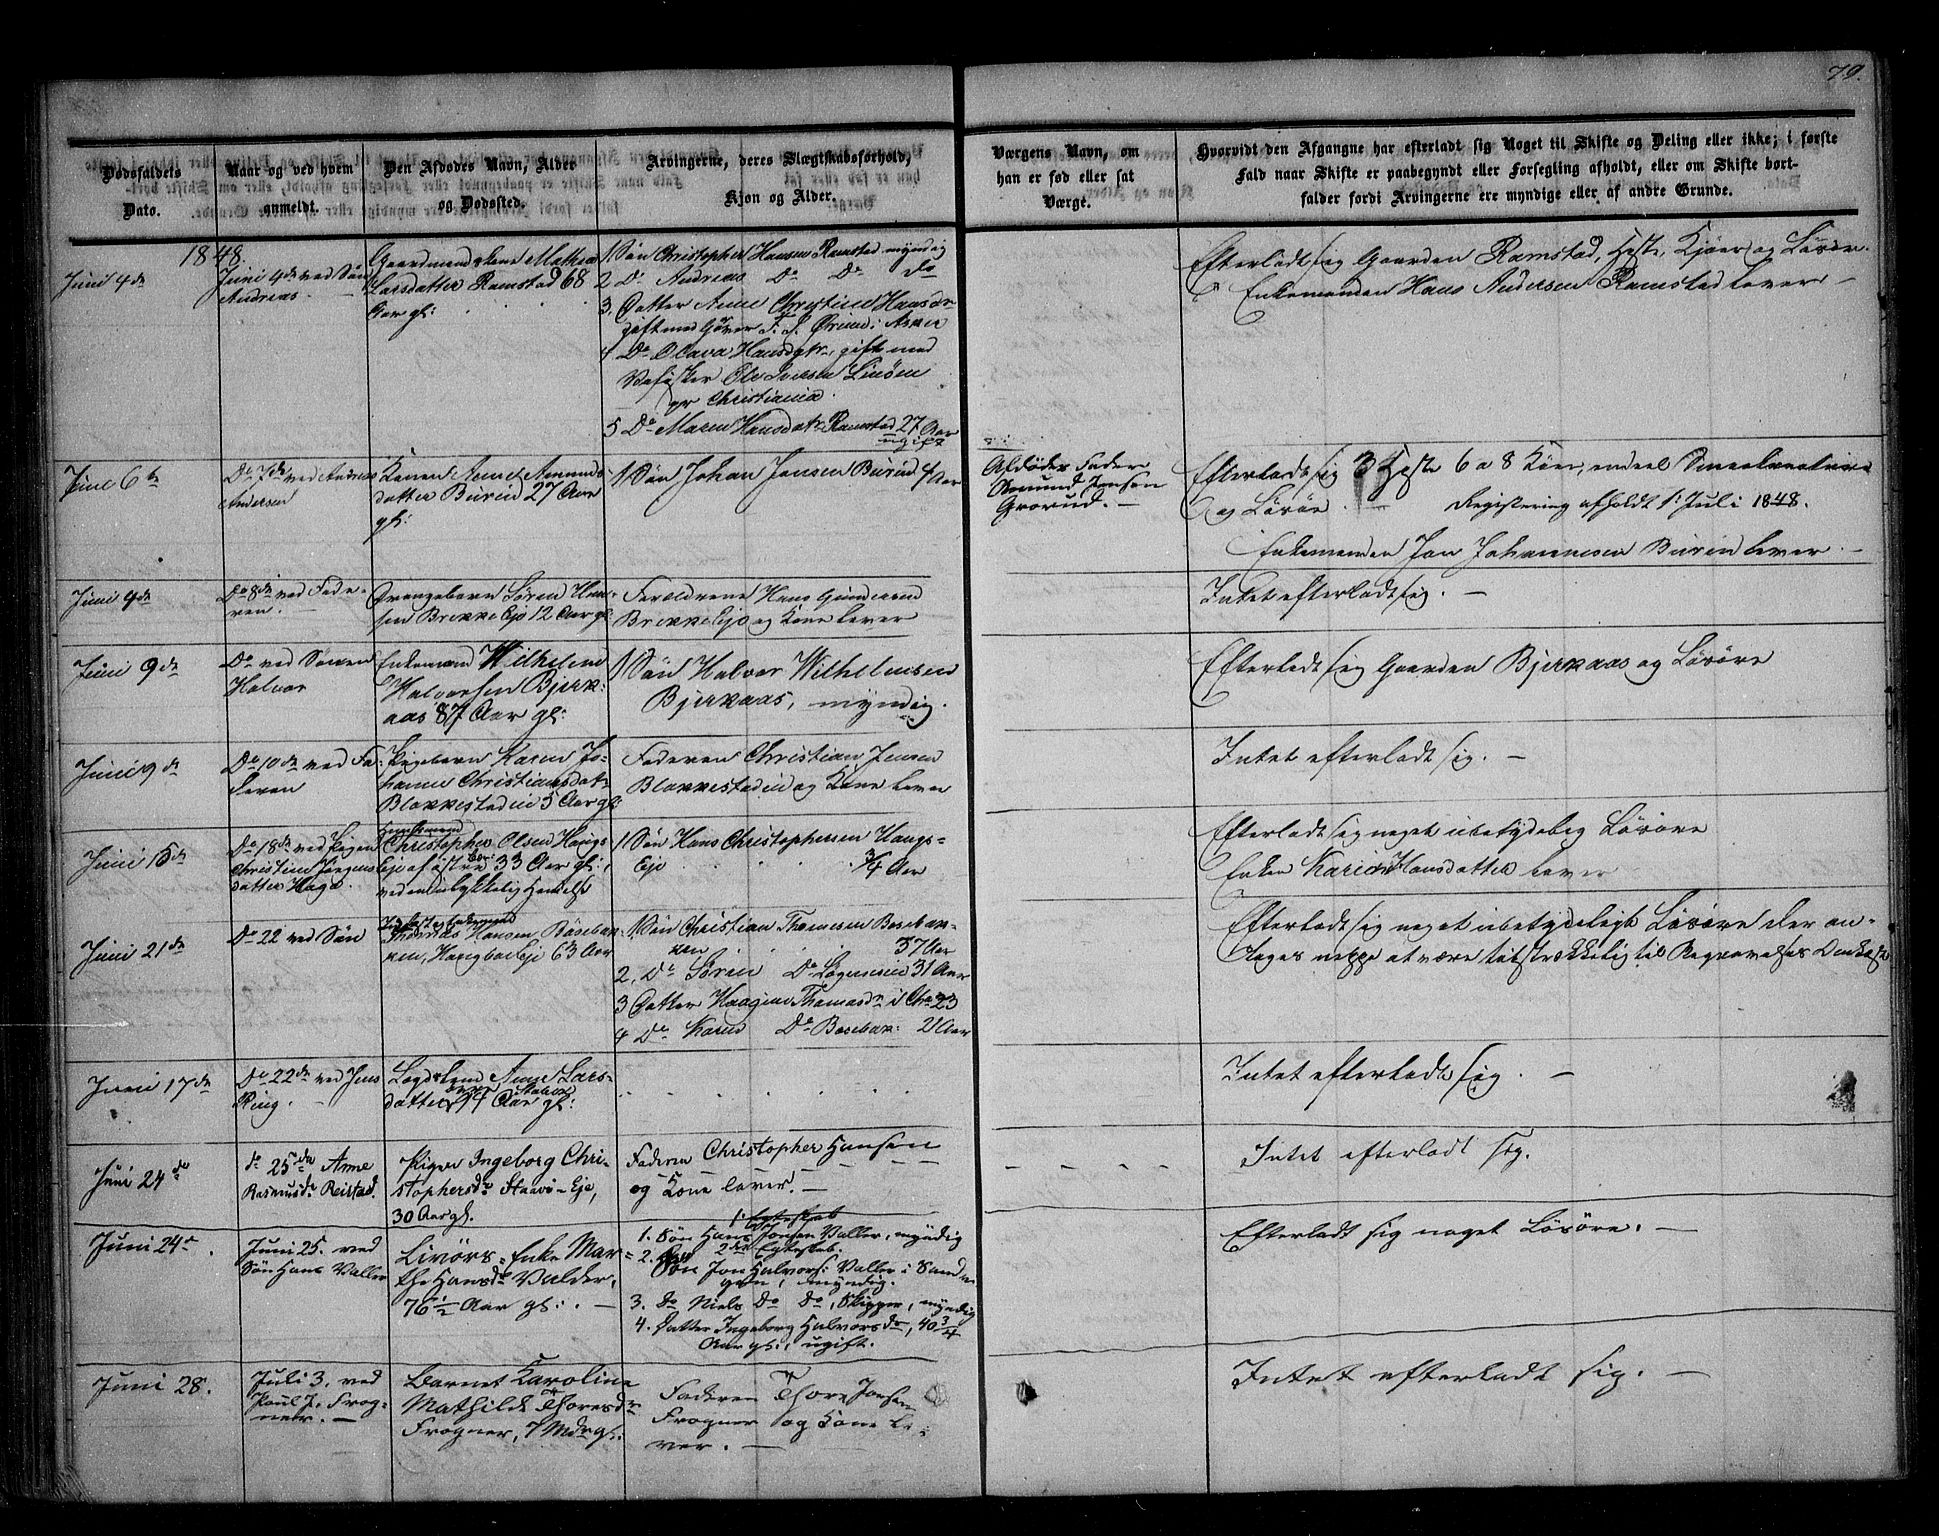 79.
Dødsfaldets
Dato.
Naar og ved hvem
anmeldt.
Den Afdødes Navn, Alder
og Dødssted.
Arvingerne, deres Slægtskabsforhold,
Kjøn og Alder.
Værgens Navn, om
han er fød eller sat
Værge.
Hvorvidt den Afgangne har efterladt sig Noget til Skifte og Deling eller ikke; i første
Fald naar Skifte er paabegyndt eller Forsegling afholdt, eller om Skifte bort-
falder fordi Arvingerne ere myndige eller af andre Grunde.
1848.
Juni 4de
Juni 4de ved Søn
Andreas.
Gaardmandskone Mathea
Larsdatter Ramstad 68
Aar gl:
1 Søn Christopher Hansen Ramstad myndig
2 Do Andreas Do Do do
3. Datter Anne Christine Hansdr
gift med
i Asker
4 Do Olava Hansdatr. gift med
Ole Iversen
Christiania.
5 Do Maren Hansdatr Ramstad 27 Aar
ugift
Efterladt sig Gaarden Ramstad, Heste, Kjøer og Løsøre.
Enkemanden Hans Andersen Ramstad lever —
Juni 6te
Do 7de ved Andreas
Andersen
Konen Anne Amunds
datter Burin 27 Aar
gl:
1 Søn Johan Jonsen Burin 4 Aar
Afdødes Fader
Amund Jonsen
Grorud. —
Efterladt sig 3 Heste 6 a 8 Køer, endeel Smaakreature
og Løsøre. Registrering afholdt 1 Juli 1848.
Enkemanden Jon Johannesen Burin lever. —
Juni 4de
Do 8de ved Fade-
ren. —
Drengebarn Søren Han-
sen Brekke Eje 12 Aar gl:
Forældrene Hans Gundersen
Brekke Eje og Kone lever
Intet efterladt sig. —
Juni 9de
Do ved Sønnen
Halvor
Enkemand Wilhelm
Halvorsen Bjerk-
aas 87 Aar gl:
1 Søn Halvor Wilhelmsen
Bjerkaas, myndig.
Efterladt sig Gaarden Bjerkaas og Løsøre
Juni 9de
Do 10de ved Fa-
deren
Pigebarn Karen Jo-
hanne Christiansdat-
Blakkestadeie 5 Aar gl:
Faderen Christian Jensen
Blakkestadeie og Kone lever
Intet efterladt sig. —
Juni 15de
Do 18de ved Pigen
Christine Jørgens
datter Haga.
Huusmand
Christopher Olsen Haugs
Eje 33 Aar gl:
ved en ulykkelig Hendelse
1 Søn Hans Christophersen Haugs-
Eje 3/4 Aar
Efterladt sig noget ubetydelig Løsøre
Enken Karen Hansdatter lever
Juni 21de
Do 22 ved Søn
Thomas Hansen Bassebak-
ken, Haugboeje 63 Aar
1. Søn Christian Thomesen Basebak-
ken 37 Aar
2, Do Søren Do 31 Aar
3 Datter Haagine Thomasdr i Chra 23
4 Do Karen Do Basebak: 21 Aar
Efterladt sig noget ubetydeligt Løsøre der an-
tages neppe at være tilstrækkelig til Begravelses Omkost
Juni 17de
Do 22de ved Jens
Ring.
Lægdslem Anne Lars-
datter Aar gl:
Intet efterladt sig. —
Juni 24de
do 25de Anne
Rasmusdr Reistad.
Pigen Ingeborg Chri-
stophersdr Staavi-Eje,
30 Aar gl.
Faderen Christopher Hansen
og Kone lever. —
Intet efterladt sig.
Juni 24de.
Juni 25. ved
Søn Hans Valler
Livørs-Enke Mar-
the Hansdr Valder,
76 1/2 Aar gl:. —
1. Egteskab
1. Søn Hans Jonsen Valler, myndig
2det Egteskab.
2. Søn Jon Halvors: Valler i Sand-
myndig.
3. Do Niels Do Do, Skipper, myndig
4. Datter Ingeborg Halvorsdr, 40 3/4
Aar gl:, ugift.
Efterladt sig noget Løsøre. —
Juni 28.
Juli 3. ved
Poul J. Frog-
ner. —
Barnet Karoline
Mathilde Thoresdr
Frogner, 7 Mdr gl:.
Faderen Thore Jonsen
Frogner og Kone le-
ver. —
Intet efterladt sig. —